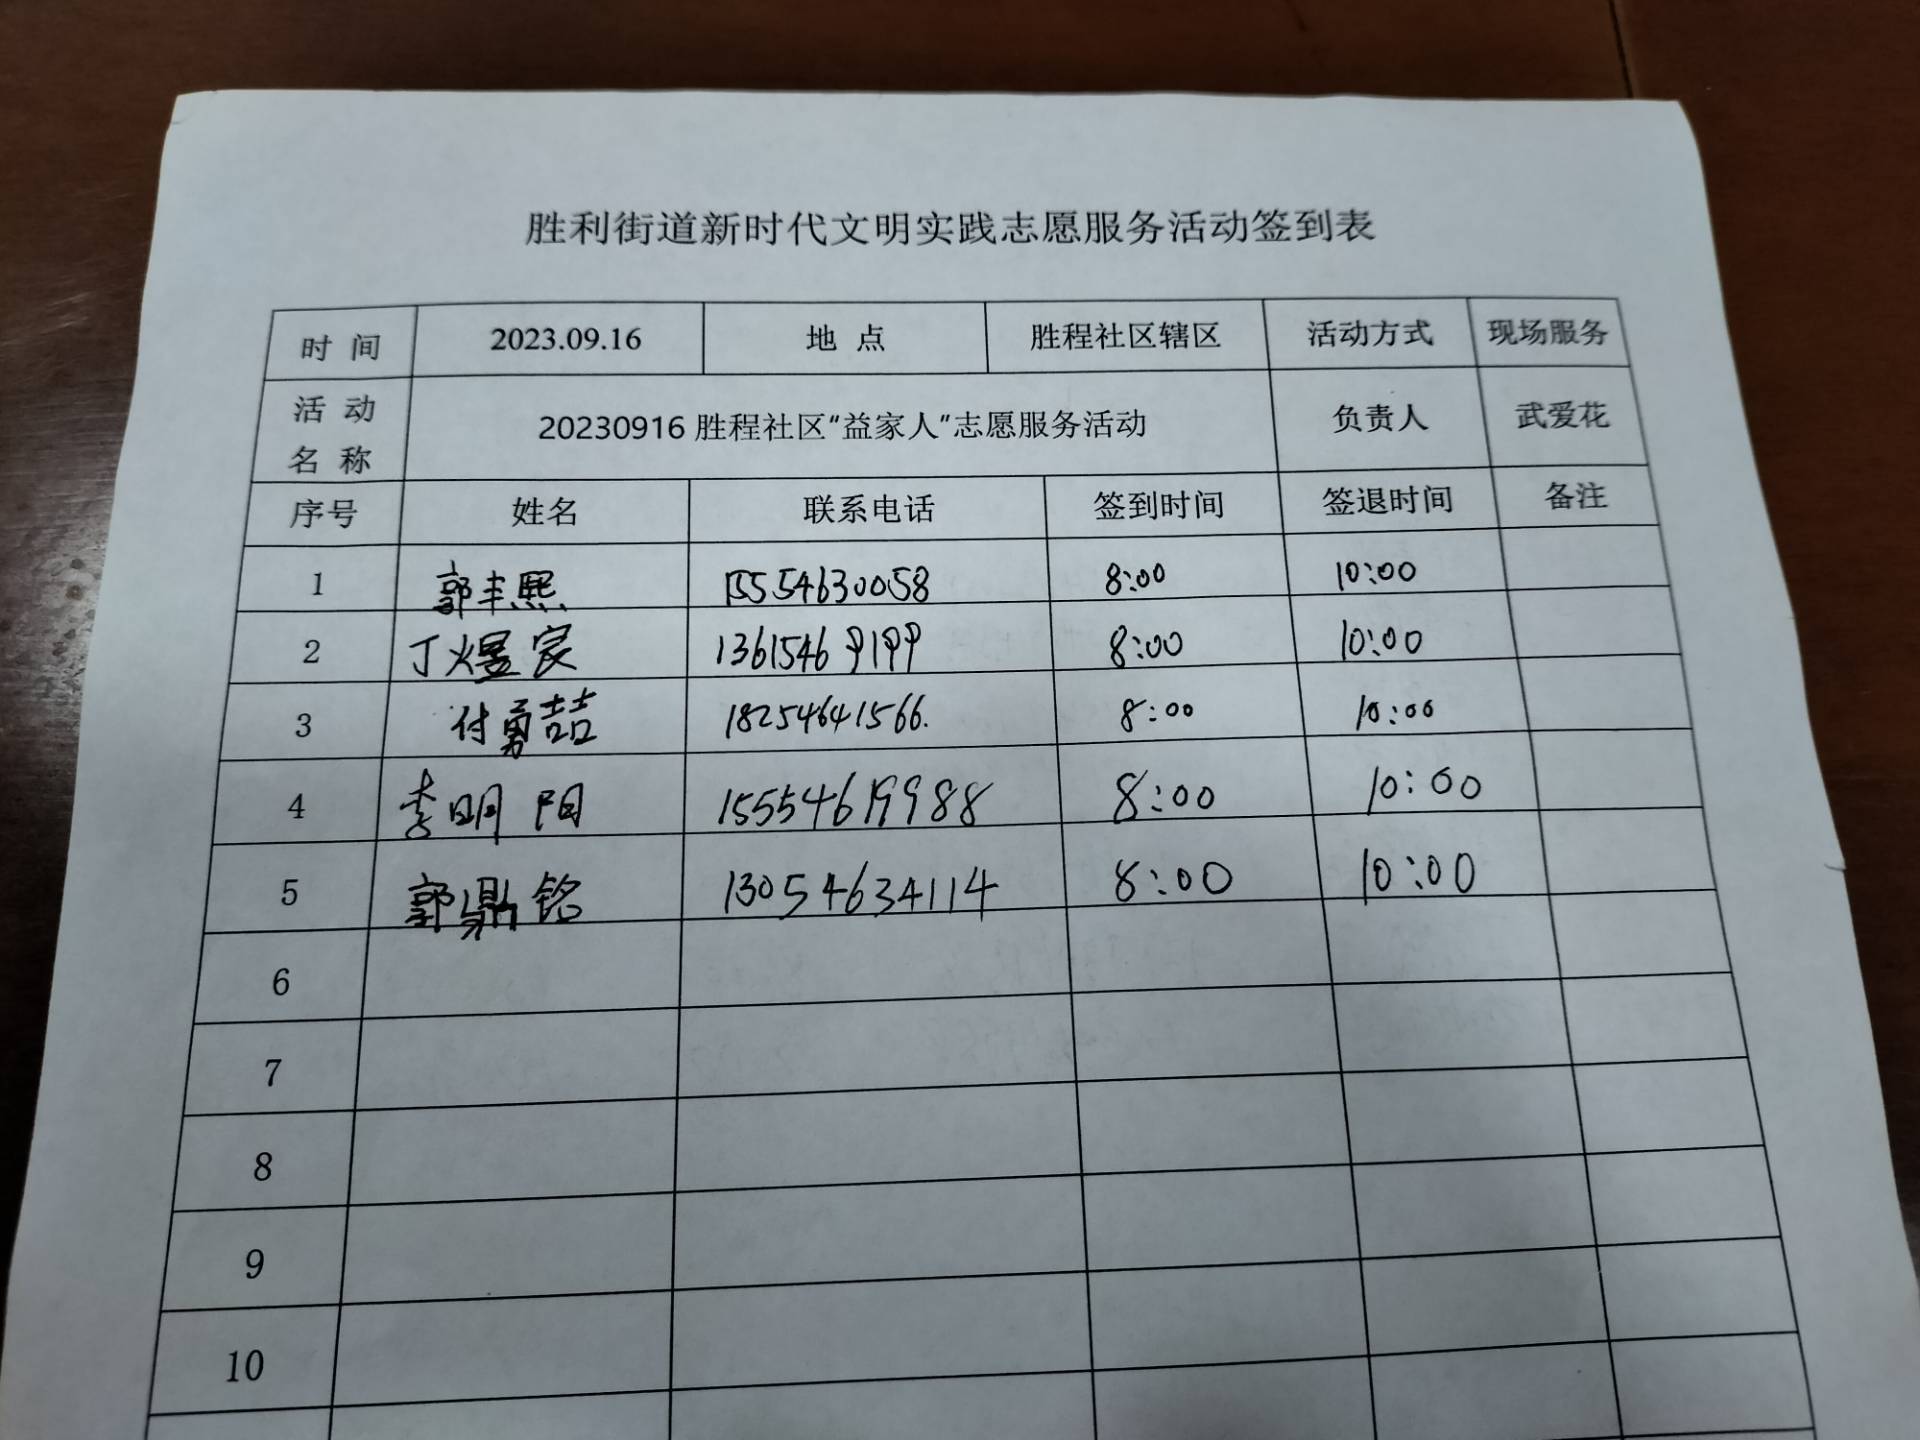 胜利街道新时代文明实践志愿服务活动签到表
时 间 2023.09.16 地 点 胜程社区辖区 活动方式 现场服务
活 动
名 称 20230916 胜程社区“益家人”志愿服务活动 负责人 武爱花
序号 姓名 联系电话 签到时间 签退时间 备注
1 郭丰熙 15554630058 8:00 10:00
2 丁煜宸 13615469199 8:00 10:00
3 付勇喆 18254641566. 8:00 10:00
4 李明阳 15554619988 8:00 10:00
5 郭鼎铭 13054634114 8:00 10:00
6
7
8
9
10